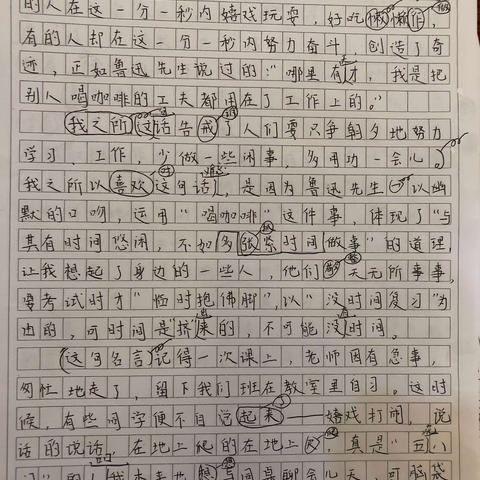 的人在这一分一秒内嬉戏玩耍，好吃懒做，
有的人却在这一分一秒内努力奋斗，创造了奇
迹，正如鲁迅先生说过的："哪里有才，我是把
别人喝咖啡的工夫都用在了工作上的。"
我之所这话告戒了人们要只争朝夕地努力
学习、工作，少做一些闲事，多用功一会儿。
我之所以喜欢这句话，是因为鲁迅先生以幽
默的口吻，运用"喝咖啡"这件事，体现了"与
其有时间悠闲，不如多张紧时间做事"的道理，
让我想起了身边的一些人，他们天无所事事，
要考试时才"临时抱佛脚"，以"没时间复习"为
由的，可时间是"挤"来的，不可能没时间。
这句名言记得一次课上，老师因有急事，
匆忙地走了，留下我们班在教室里自习。这时
候，有些同学便不自觉起来——嬉戏打闹，说
话的说话，在地上爬的在地上，真是"五八